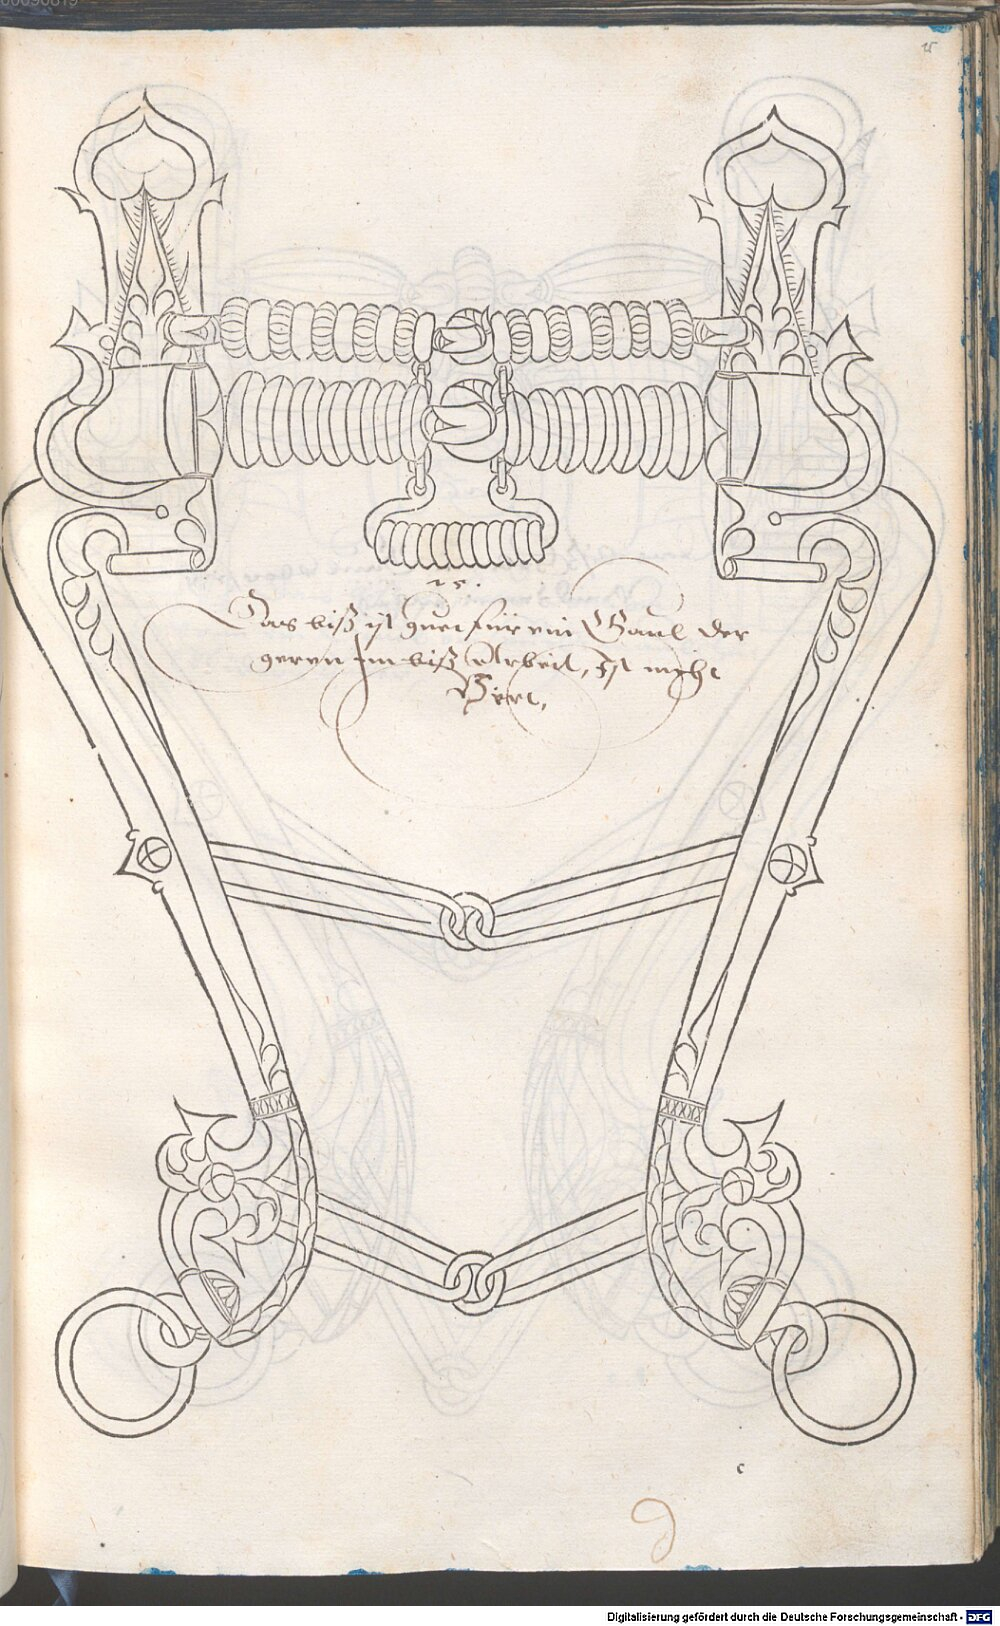 00090819
25.
Das biß ist guet für ein Gaul der
geren im biß Arbeit, Ist nicht
Digitalisierung gefördert durch die Deutsche Forschungsgemeinschaft - DFG